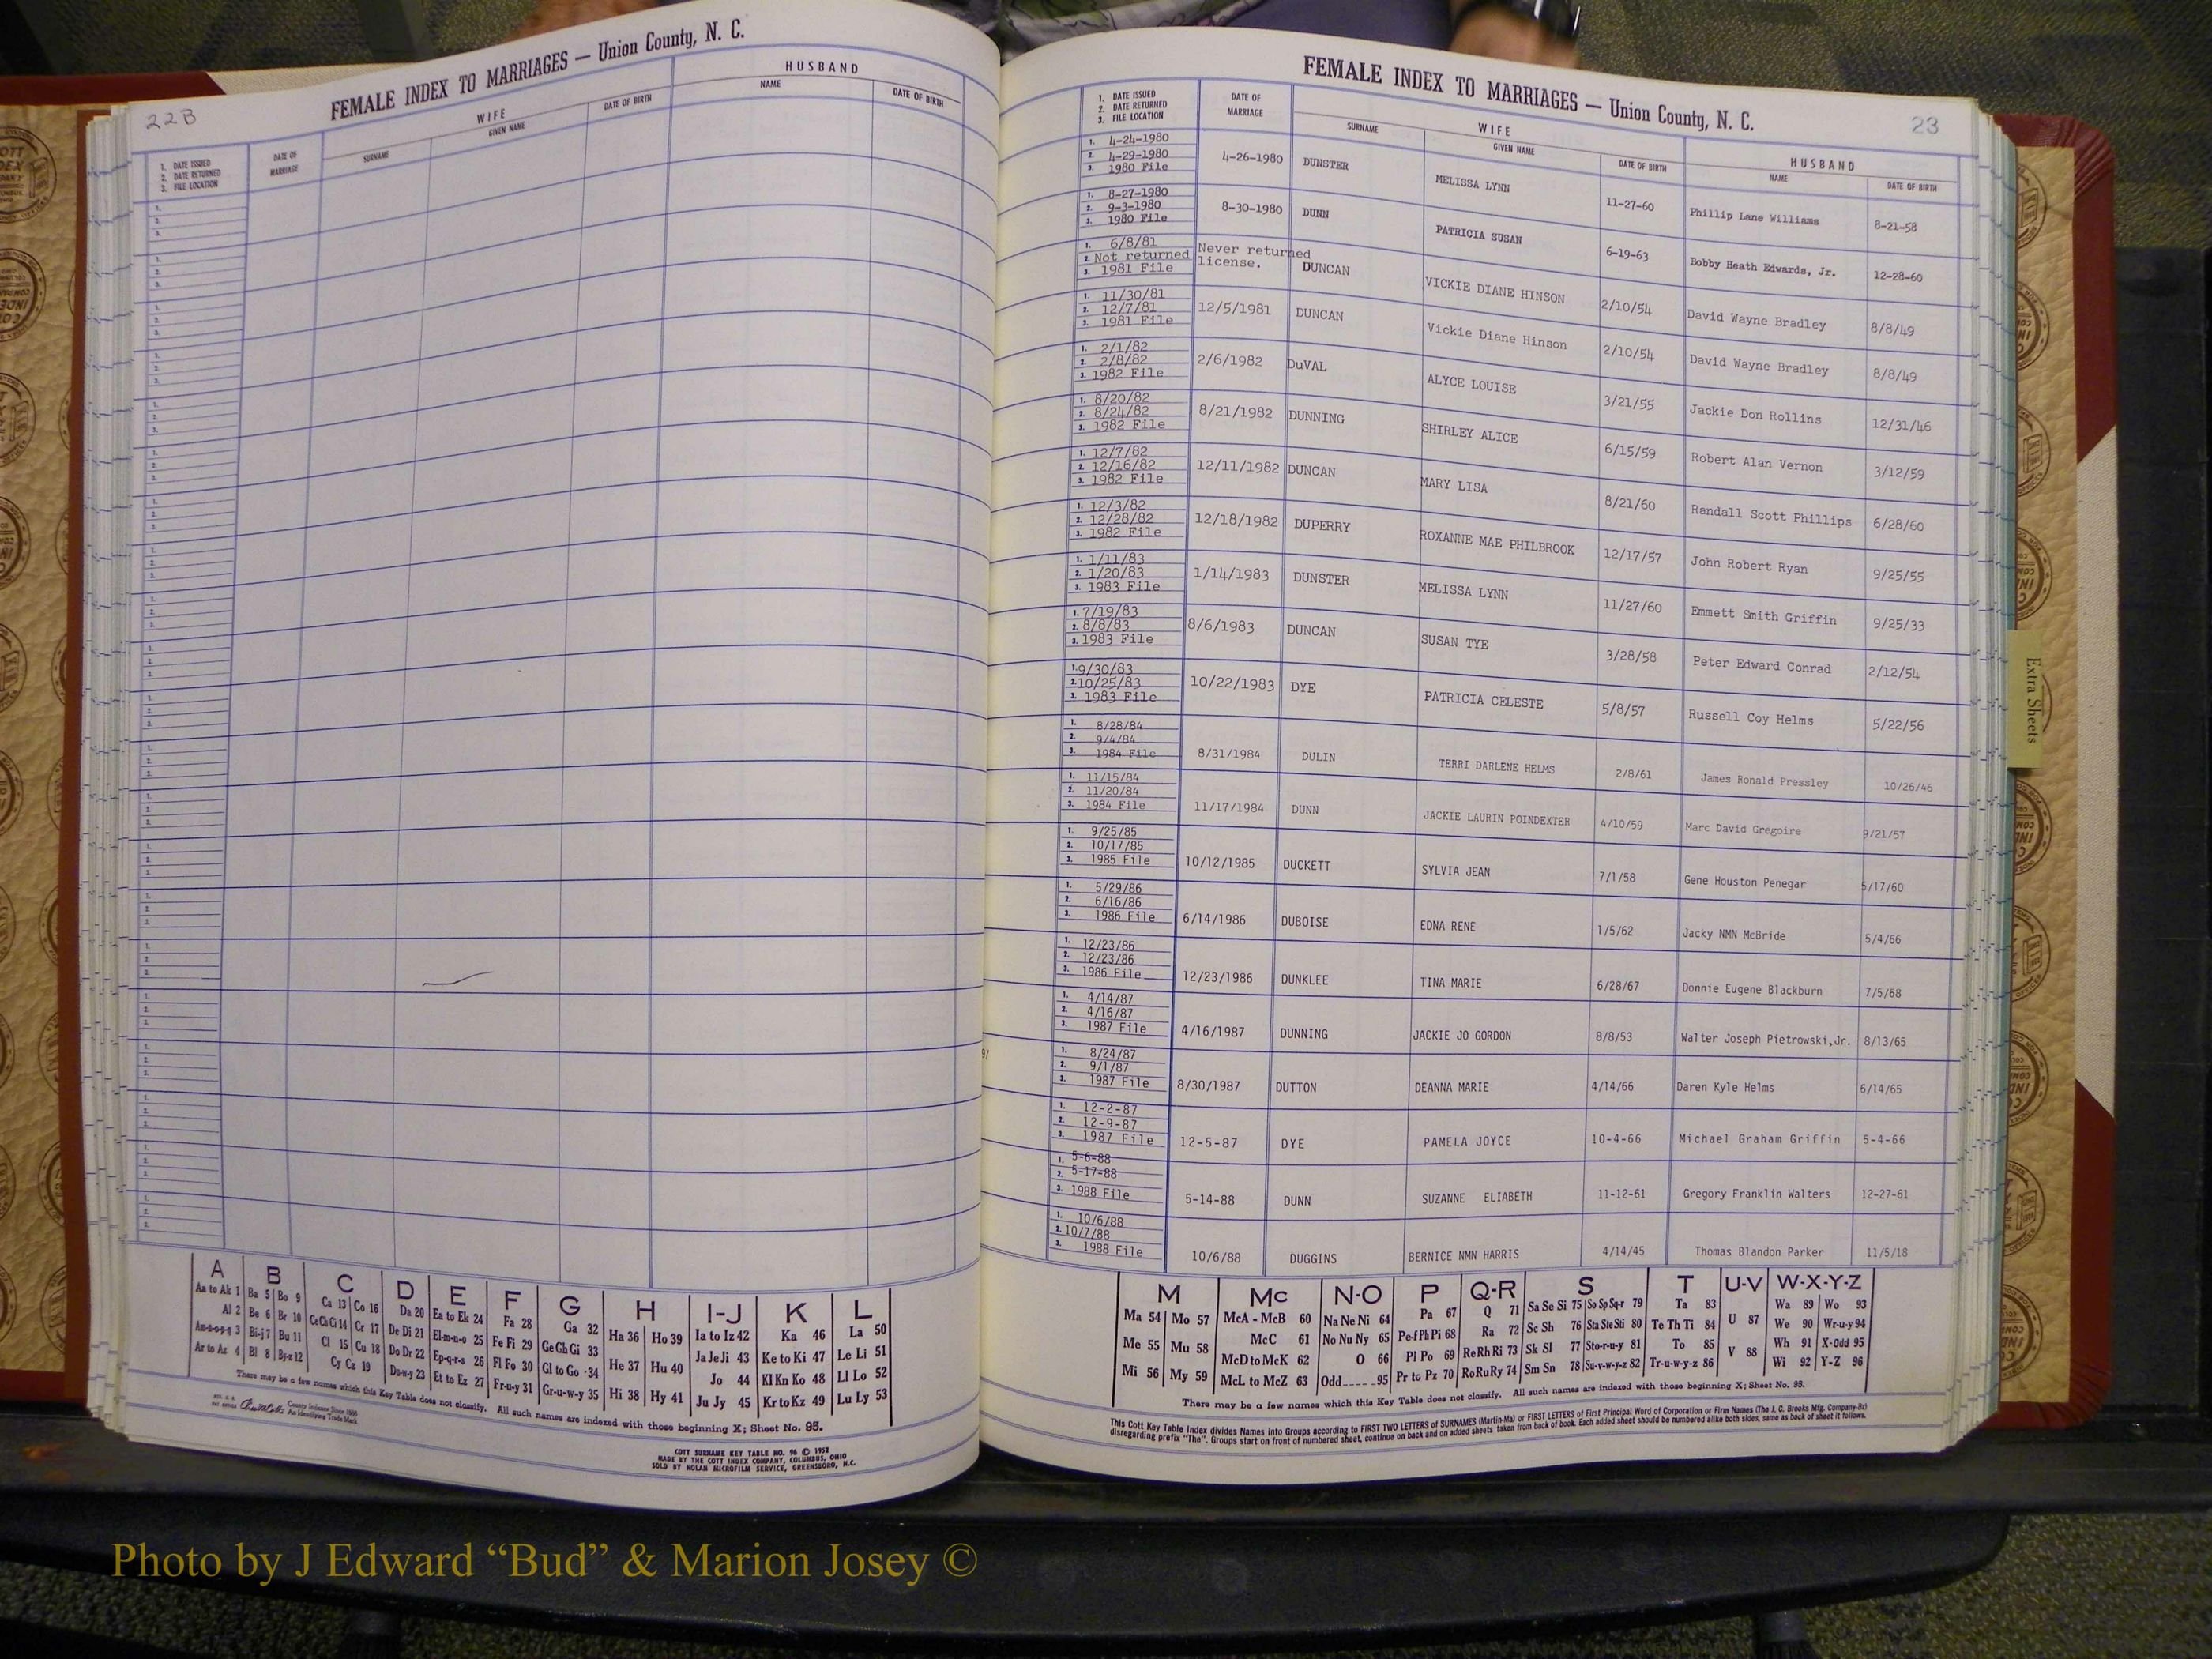 22B
FEMALE INDEX TO MARRIAGES — Union County, N. C.
WIFE
HUSBAND
1. DATE ISSUED
2. DATE RETURNED
3. FILE LOCATION
DATE OF MARRIAGE
SURNAME
GIVEN NAME
DATE OF BIRTH
NAME
DATE OF BIRTH
A B C D E F G H I-J K L
Aa to Ak 1 Ba 5 Bo 9 Ca 13 Co 16 Da 20 Ea to Ek 24 Fa 28 Ga 32 Ha 36 Ho 39 Ia to Iz 42 Ka 46 La 50
Al 2 Be 6 Br 10 Ce Ch Ci 14 Cr 17 De Di 21 El-m-n-o 25 Fe Fi 29 Ge Gh Gi 33 He 37 Hu 40 Ja Je Ji 43 Ke to Ki 47 Le Li 51
Am-n-o-p-q 3 Bi-j 7 Bu 11 Cl 15 Cu 18 Do Dr 22 Ep-q-r-s 26 Fl Fo 30 Gl to Go 34 Hi 38 Hy 41 Jo 44 Kl Kn Ko 48 Ll Lo 52
Ar to Az 4 Bl 8 By-z 12 Cy Cz 19 Du-w-y 23 Et to Ez 27 Fr-u-y 31 Gr-u-w-y 35 Ju Jy 45 Kr to Kz 49 Lu Ly 53
There may be a few names which this Key Table does not classify. All such names are indexed with those beginning X; Sheet No. 95.
County Indexes Since 1888
An Identifying Trade Mark
COTT SURNAME KEY TABLE NO. 96 © 1952
MADE BY THE COTT INDEX COMPANY, COLUMBUS, OHIO
SOLD BY NOLAN MICROFILM SERVICE, GREENSBORO, N.C.
FEMALE INDEX TO MARRIAGES — Union County, N. C.
23
1. DATE ISSUED
2. DATE RETURNED
3. FILE LOCATION
DATE OF MARRIAGE
WIFE
SURNAME
GIVEN NAME
DATE OF BIRTH
HUSBAND
NAME
DATE OF BIRTH
1. 4-24-1980
2. 4-29-1980
3. 1980 File
4-26-1980 DUNSTER MELISSA LYNN 11-27-60 Phillip Lane Williams 8-21-58
1. 8-27-1980
2. 9-3-1980
3. 1980 File
8-30-1980 DUNN PATRICIA SUSAN 6-19-63 Bobby Heath Edwards, Jr. 12-28-60
1. 6/8/81
2. Not returned
3. 1981 File
Never returned license. DUNCAN VICKIE DIANE HINSON 2/10/54 David Wayne Bradley 8/8/49
1. 11/30/81
2. 12/7/81
3. 1981 File
12/5/1981 DUNCAN Vickie Diane Hinson 2/10/54 David Wayne Bradley 8/8/49
1. 2/1/82
2. 2/8/82
3. 1982 File
2/6/1982 DuVAL ALYCE LOUISE 3/21/55 Jackie Don Rollins 12/31/46
1. 8/20/82
2. 8/24/82
3. 1982 File
8/21/1982 DUNNING SHIRLEY ALICE 6/15/59 Robert Alan Vernon 3/12/59
1. 12/7/82
2. 12/16/82
3. 1982 File
12/11/1982 DUNCAN MARY LISA 8/21/60 Randall Scott Phillips 6/28/60
1. 12/3/82
2. 12/28/82
3. 1982 File
12/18/1982 DUPERRY ROXANNE MAE PHILBROOK 12/17/57 John Robert Ryan 9/25/55
1. 1/11/83
2. 1/20/83
3. 1983 File
1/14/1983 DUNSTER MELISSA LYNN 11/27/60 Emmett Smith Griffin 9/25/33
1. 7/19/83
2. 8/8/83
3. 1983 File
8/6/1983 DUNCAN SUSAN TYE 3/28/58 Peter Edward Conrad 2/12/54
1. 9/30/83
2. 10/25/83
3. 1983 File
10/22/1983 DYE PATRICIA CELESTE 5/8/57 Russell Coy Helms 5/22/56
1. 8/28/84
2. 9/4/84
3. 1984 File
8/31/1984 DULIN TERRI DARLENE HELMS 2/8/61 James Ronald Pressley 10/26/46
1. 11/15/84
2. 11/20/84
3. 1984 File
11/17/1984 DUNN JACKIE LAURIN POINDEXTER 4/10/59 Marc David Gregoire 9/21/57
1. 9/25/85
2. 10/17/85
3. 1985 File
10/12/1985 DUCKETT SYLVIA JEAN 7/1/58 Gene Houston Penegar 5/17/60
1. 5/29/86
2. 6/16/86
3. 1986 File
6/14/1986 DUBOISE EDNA RENE 1/5/62 Jacky NMN McBride 5/4/66
1. 12/23/86
2. 12/23/86
3. 1986 File
12/23/1986 DUNKLEE TINA MARIE 6/28/67 Donnie Eugene Blackburn 7/5/68
1. 4/14/87
2. 4/16/87
3. 1987 File
4/16/1987 DUNNING JACKIE JO GORDON 8/8/53 Walter Joseph Pietrowski,Jr. 8/13/65
1. 8/24/87
2. 9/1/87
3. 1987 File
8/30/1987 DUTTON DEANNA MARIE 4/14/66 Daren Kyle Helms 6/14/65
1. 12-2-87
2. 12-9-87
3. 1987 File
12-5-87 DYE PAMELA JOYCE 10-4-66 Michael Graham Griffin 5-4-66
1. 5-6-88
2. 5-17-88
3. 1988 File
5-14-88 DUNN SUZANNE ELIABETH 11-12-61 Gregory Franklin Walters 12-27-61
1. 10/6/88
2. 10/7/88
3. 1988 File
10/6/88 DUGGINS BERNICE NMN HARRIS 4/14/45 Thomas Blandon Parker 11/5/18
M Mc N-O P Q-R S T U-V W-X-Y-Z
Ma 54 Mo 57 McA - McB 60 Na Ne Ni 64 Pa 67 Q 71 Sa Se Si 75 So Sp Sq-r 79 Ta 83 U 87 Wa 89 Wo 93
Me 55 Mu 58 McC 61 No Nu Ny 65 Pe-f Ph Pi 68 Ra 72 Sc Sh 76 Sta Ste Sti 80 Te Th Ti 84 V 88 We 90 Wr-u-y 94
Mi 56 My 59 McD to McK 62 O 66 Pl Po 69 Re Rh Ri 73 Sk Sl 77 Sto-r-u-y 81 To 85 Wh 91 X-Odd 95
McL to McZ 63 Odd 95 Pr to Pz 70 Ro Ru Ry 74 Sm Sn 78 Su-v-w-y-z 82 Tr-u-w-y-z 86 Wi 92 Y-Z 96
There may be a few names which this Key Table does not classify. All such names are indexed with those beginning X; Sheet No. 95.
This Cott Key Table Index divides Names into Groups according to FIRST TWO LETTERS of SURNAMES (Martin-Ma) or FIRST LETTERS of First Principal Word of Corporation or Firm Names (The J. C. Brooks Mfg. Company-Br)
disregarding prefix "The". Groups start on front of numbered sheet, continue on back and on added sheets taken from back of book. Each added sheet should be numbered alike both sides, same as back of sheet it follows.
Extra Sheets
Photo by J Edward “Bud” & Marion Josey ©